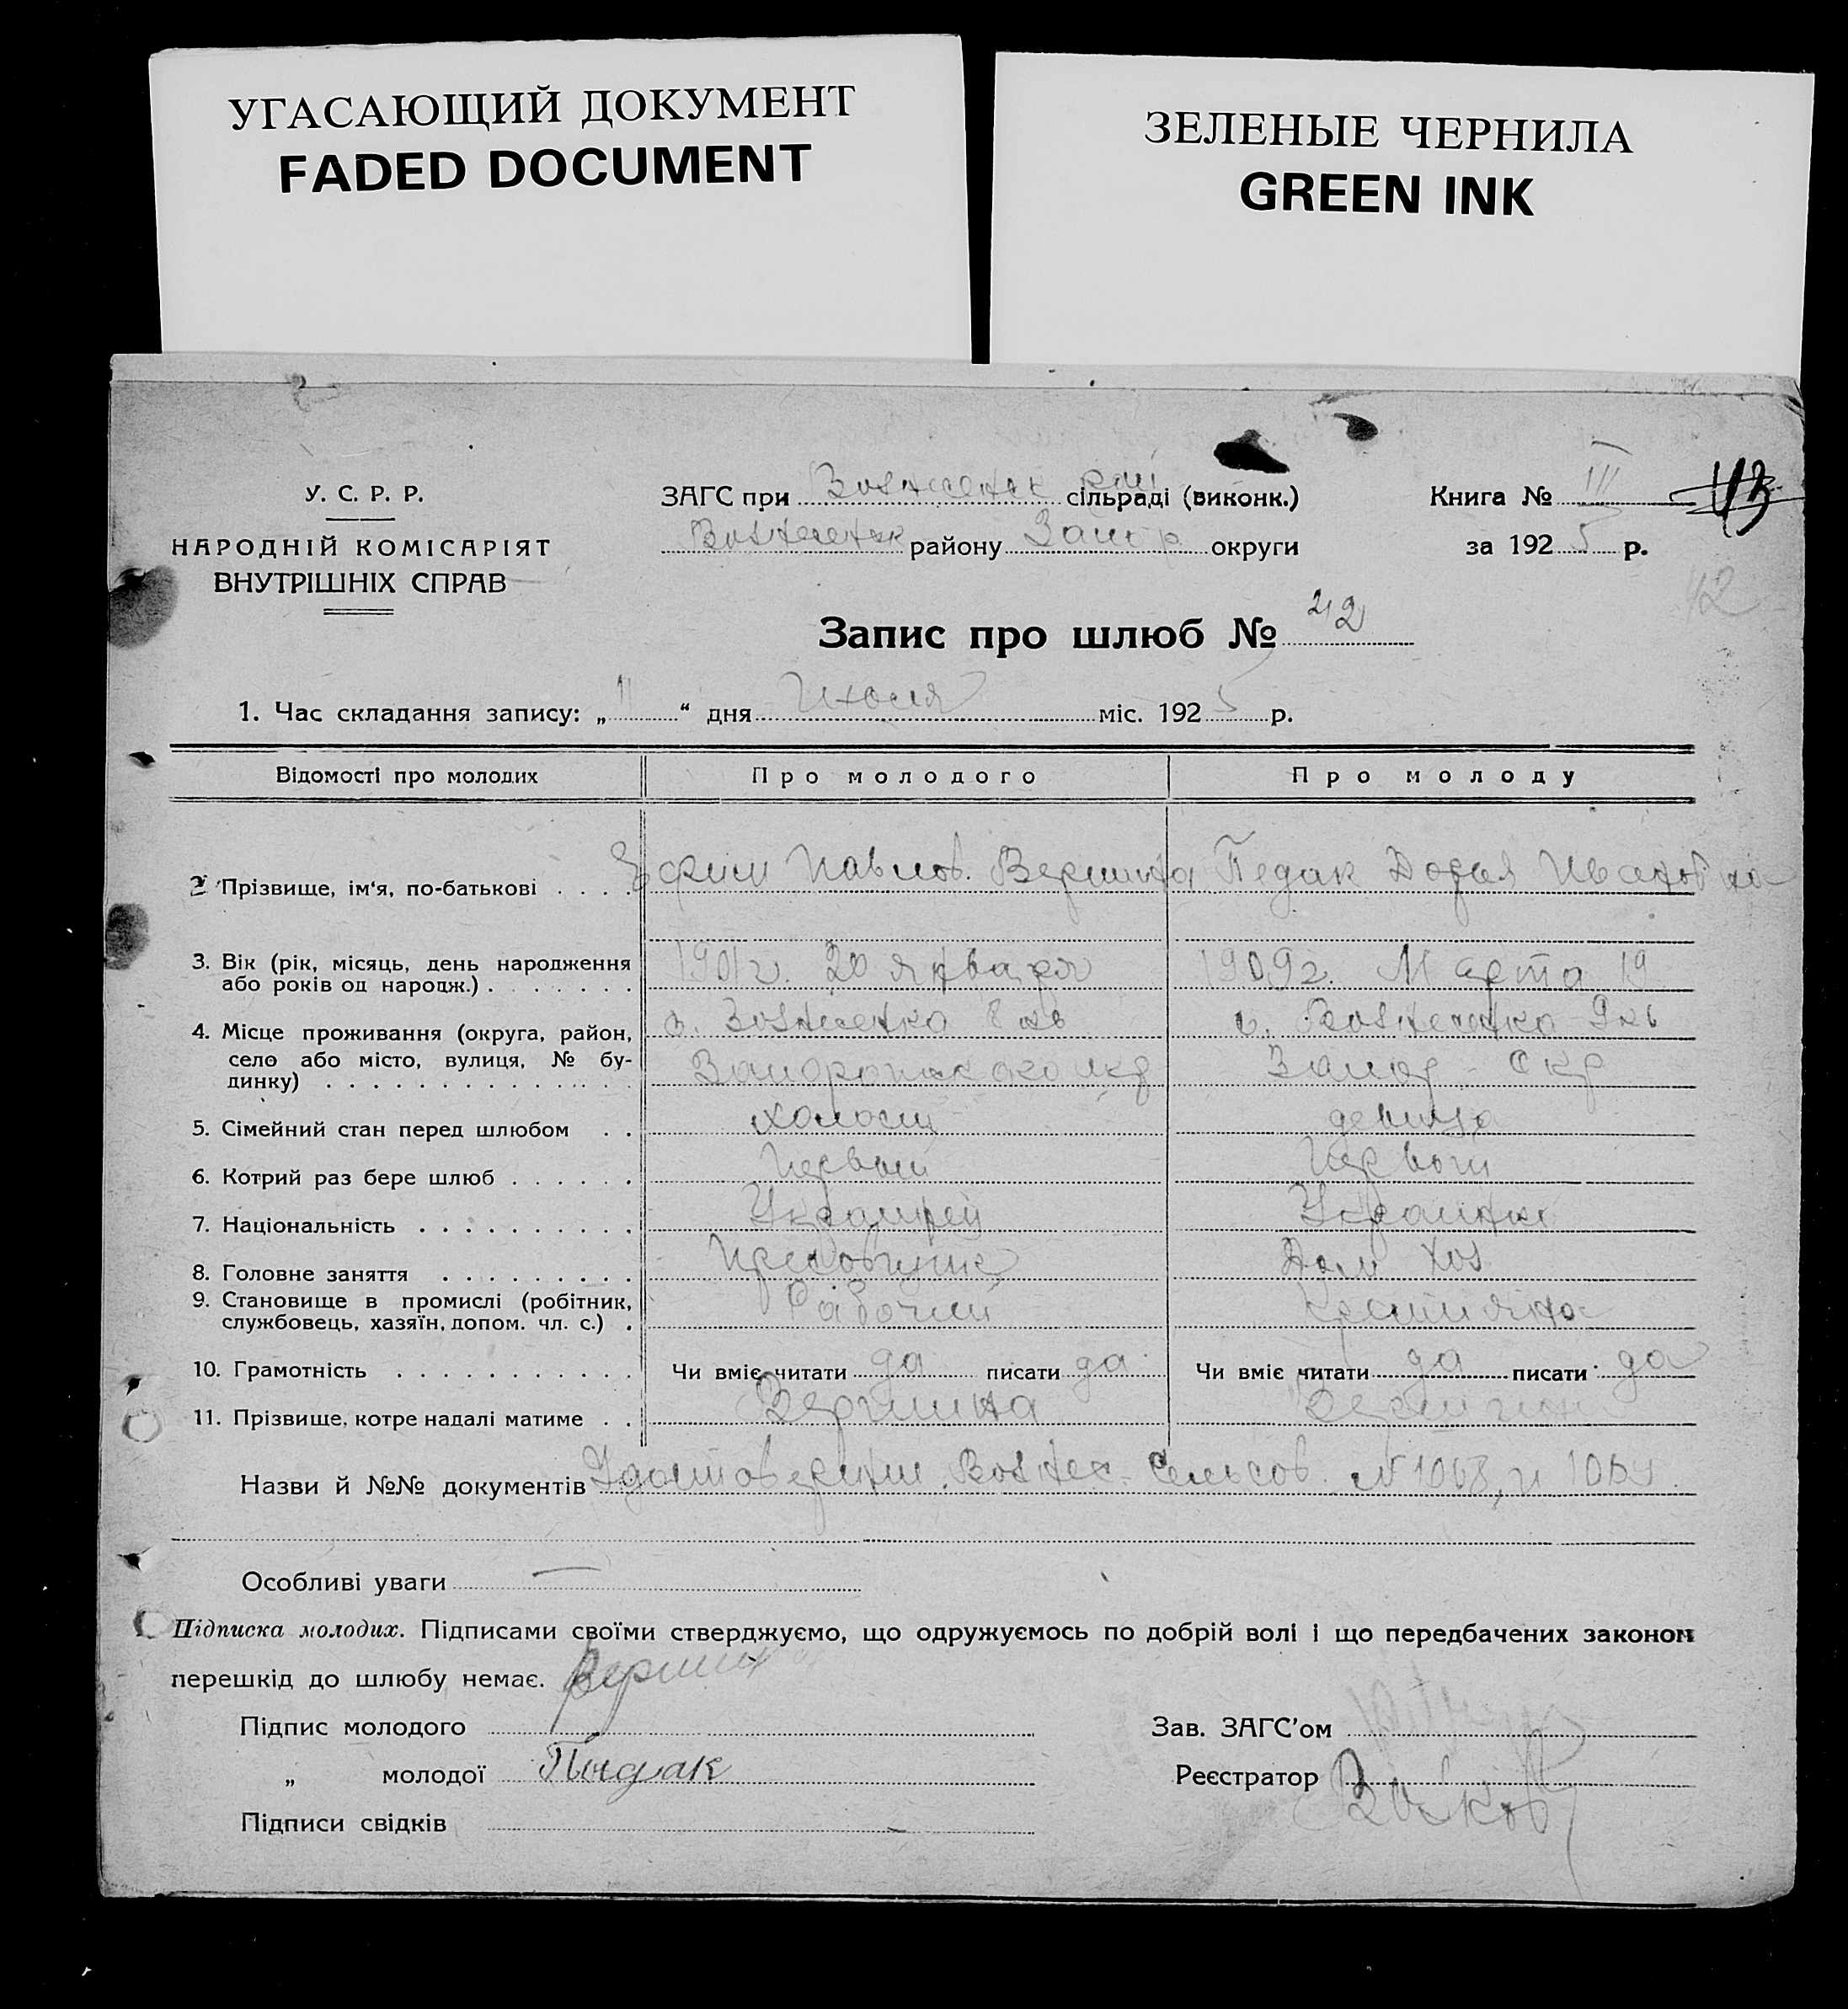 УГАСАЮЩИЙ ДОКУМЕНТ
FADED DOCUMENT
ЗЕЛЕНЫЕ ЧЕРНИЛА
GREEN INK
У. С. Р. Р.
НАРОДНІЙ КОМІСАРІЯТ
ВНУТРІШНІХ СПРАВ
ЗАГС при Вознесенск рай сільраді (виконк.)
Вознесенск району Запор округи
Книга № III
43
за 1925 р.
42
Запис про шлюб № 42
1. Час складання запису: „ 11 “ дня Июля міс. 1925 р.
Відомості про молодих Про молодого Про молоду
2 Прізвище, ім‘я, по-батькові . . . . Ефим Павлов. Вершина Педак Дарья Ивановна
3. Вік (рік, місяць, день народження 1901 г. 20 января 1909 г. Марта 19
або років од народж.) . . . . . . .
4. Місце проживання (округа, район, с. Вознесенка 8 кв с. Вознесенка 9 кв
село або місто, вулиця, № бу- Запорожского окр Запор - окр
динку) . . . . . . . . . . . . . .
5. Сімейний стан перед шлюбом . . холост девица
6. Котрий раз бере шлюб . . . . . . Первый Первый
7. Національність . . . . . . . . . . Украинец Украинка
8. Головне заняття . . . . . . . . . Дом хоз
9. Становище в промислі (робітник, Рабочий Крестьянка
службовець, хазяїн, допом. чл. с.) .
10. Грамотність . . . . . . . . . . . Чи вміє читати да писати да Чи вміє читати да писати да
11. Прізвище, котре надалі матиме . . Вершина Вершина
Назви й №№ документів Удостоверения Вознес. Сельсов №1068, и
Особливі уваги —
Підписка молодих. Підписами своїми стверджуємо, що одружуємось по добрій волі і що передбачених законом
перешкід до шлюбу немає.
Підпис молодого Вершина
Зав. ЗАГС’ом
„ молодої Пидак
Реєстратор
Підписи свідків —